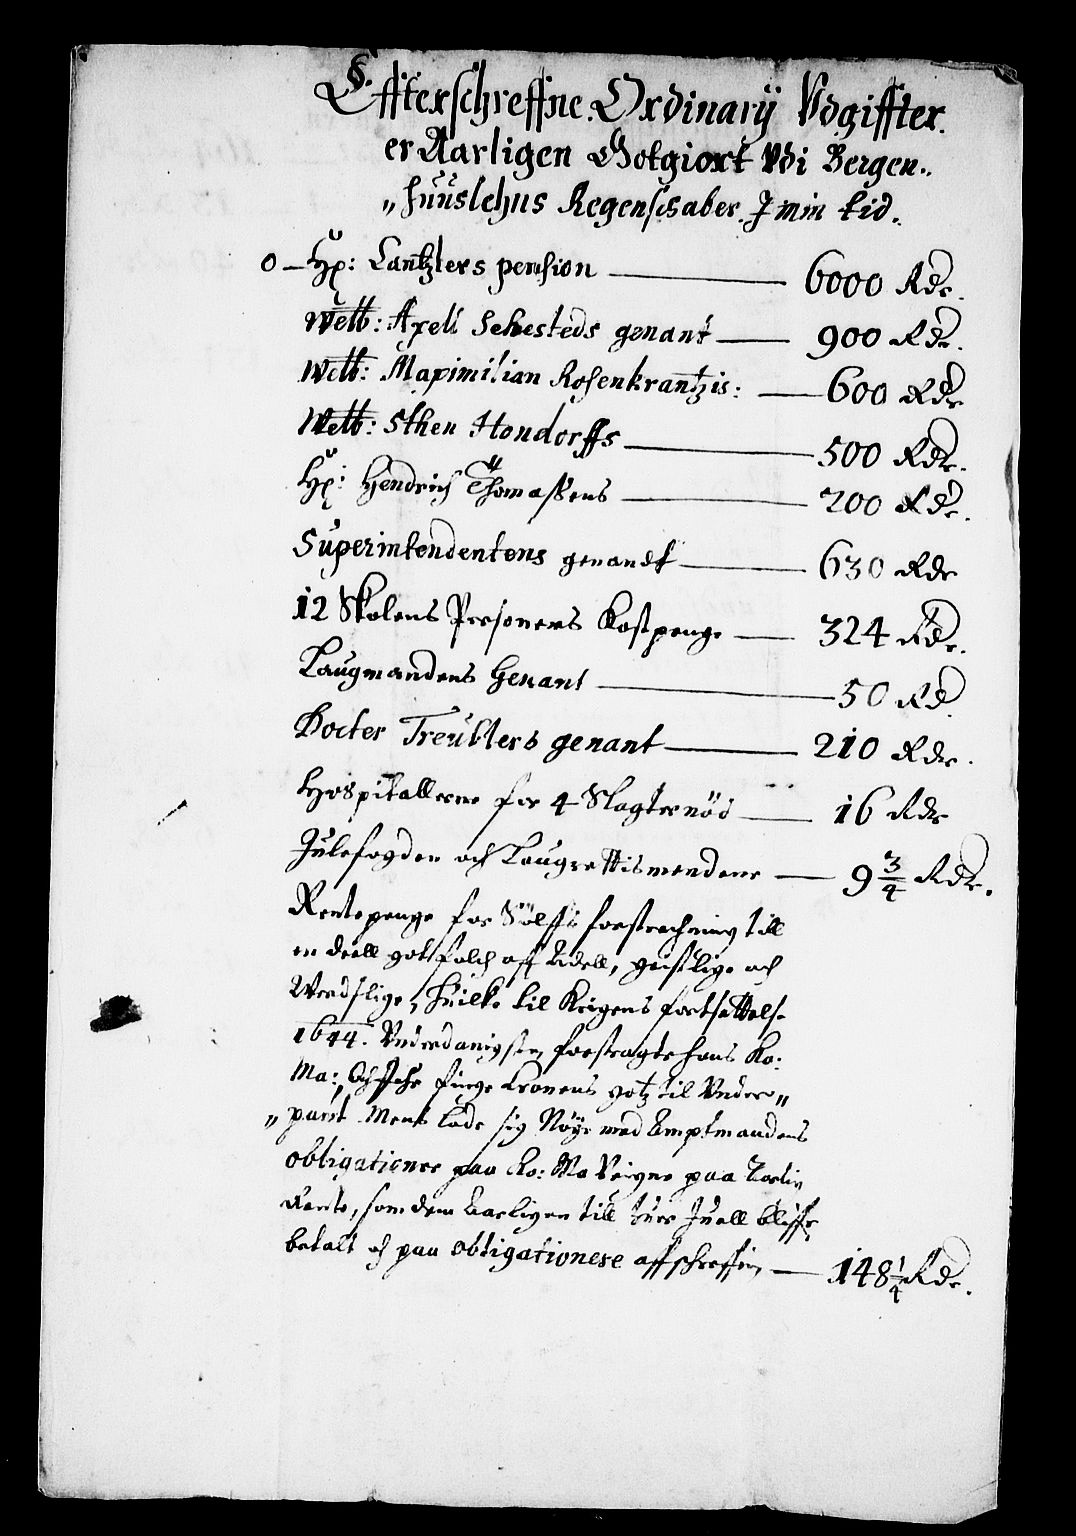 Effterschreffne Ordinarÿ Vdgiffter
er Aarligen Gotgiort Vdi Bergen„
„huuslehns Regenskaber. I min tid.
0 – Hr: Cantzlers pension — 6000 Rdr.
Welb: Axell Sehesteds genant — 900 Rdr.
Welb: Maximilian Rosenkrantzis: — 600 Rdr
Welb: Sthen Hondorffs — 500 Rdr.
Hr: Hendrich Thomassens — 200 Rdr.
Superintendentens genandt — 630 Rdr
12 Skolens Personers Kostpenge — 324 Rdr.
Laugmandens Genant — 50 Rd.
Docter Treublers genant — 210 Rdr.
Hospitallerne for 4 Slagternöd — 16 Rdr
Julefogden och Laugrettismendene — 9 3/4 Rdr.
Rentepenge for Sölffs forstrechning till
en deell got folch aff Adell, geistlige och
Werdslige, huilke til Krigens fortsettelse
1644. Vnderdanigsten forstragte hans Ko:
Ma:, och iche finge Cronens gotz til Vnder„
„pant Ment lade sig Nöye med Amptmandens
obligationer paa Ko: Ma Veigne paa Aarlig
Rente, som dem Aarligen till huer Juell bliffr
betalt och paa obligationerne affschreffven — 148 1/4 Rdr.